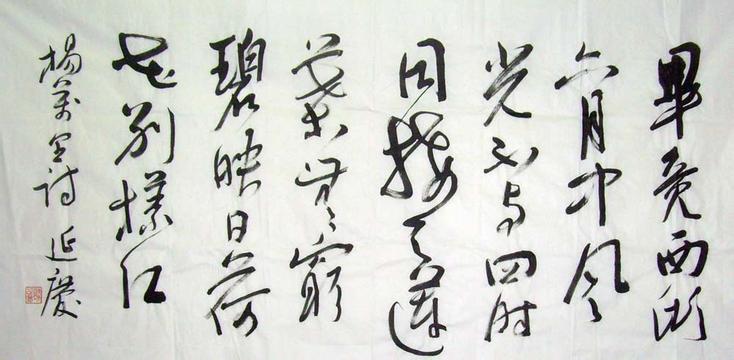 畢竟西湖
六月中風
光不与四時
同接天蓮
葉無窮
碧映日荷
花别樣红
楊萬里詩 延慶